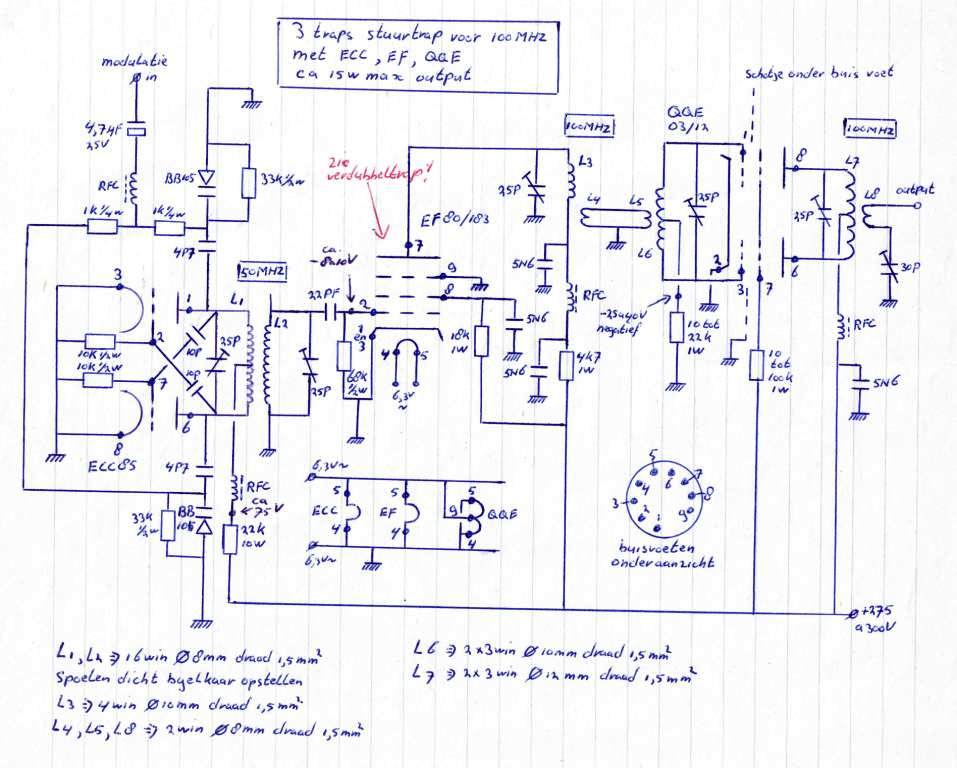 3 traps stuurtrap voor 100MHZ
met ECC, EF, QQE
ca 15W max output
modulatie
in
4,7µF
25V
RFC
1K¼w
1K¼w
BB105
33K½w
4P7
50MHZ
3
2
7
8
1
6
10K½w
10K½w
ECC85
10P
10P
25P
L1
L2
4P7
33K
½w
BB
105
RFC
ca
75V
22K
10W
25P
22PF
ca.
-8a10V
zie
verdubbeltrap!
EF80/183
7
9
8
2
1
en
3
68K
½w
4
5
6,3V
~
18K
1W
5N6
5N6
5N6
100MHZ
25P
L3
RFC
4K7
1W
L4
L5
L6
QQE
03/12
25P
2
1
3
7
-25a40V
negatief
10 tot
22K
1W
schotje onder buis voet
10
tot
100k
1W
100MHZ
8
6
25P
L7
L8
output
30P
RFC
5N6
6,3V~
5
ECC
4
5
EF
4
5
9
QQE
4
6,3V~
5
6
7
4
8
3
9
2
1
buisvoeten
onderaanzicht
+275
a300V
L1, L2 => 16 win Ø 8mm draad 1,5mm²
Spoelen dicht bijelkaar opstellen
L3 => 4 win Ø 10mm draad 1,5mm²
L4, L5, L8 => 2 win Ø 8mm draad 1,5mm²
L6 => 2x3win Ø 10mm draad 1,5mm²
L7 => 2x3win Ø 12mm draad 1,5mm²